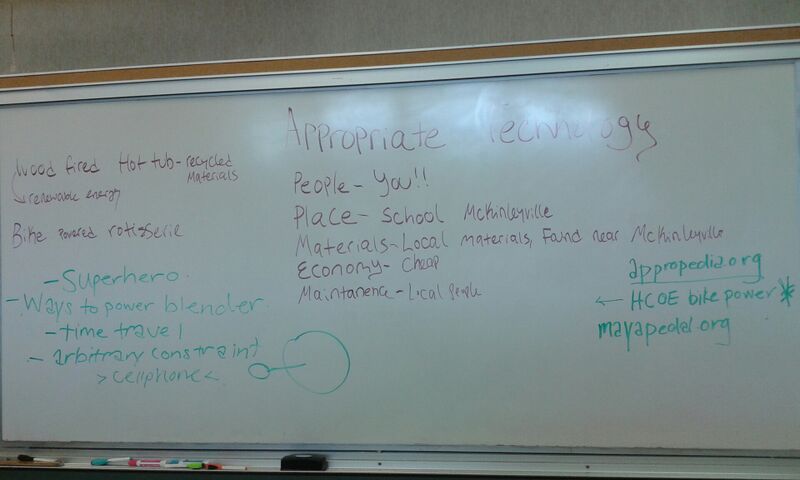 Appropriate Technology
Wood fired Hot tub - recycled
Materials
renewable energy
Bike Powered rotisserie
People - You!!
Place - School McKinleyville
Materials - Local materials, Found near McKinleyville
Economy - Cheap
Maintanence - Local People
- Superhero.
- Ways to power blender.
- time travel
- arbitrary constraint
> cellphone <
appropedia.org
← HCOE bike power *
mayapedal.org